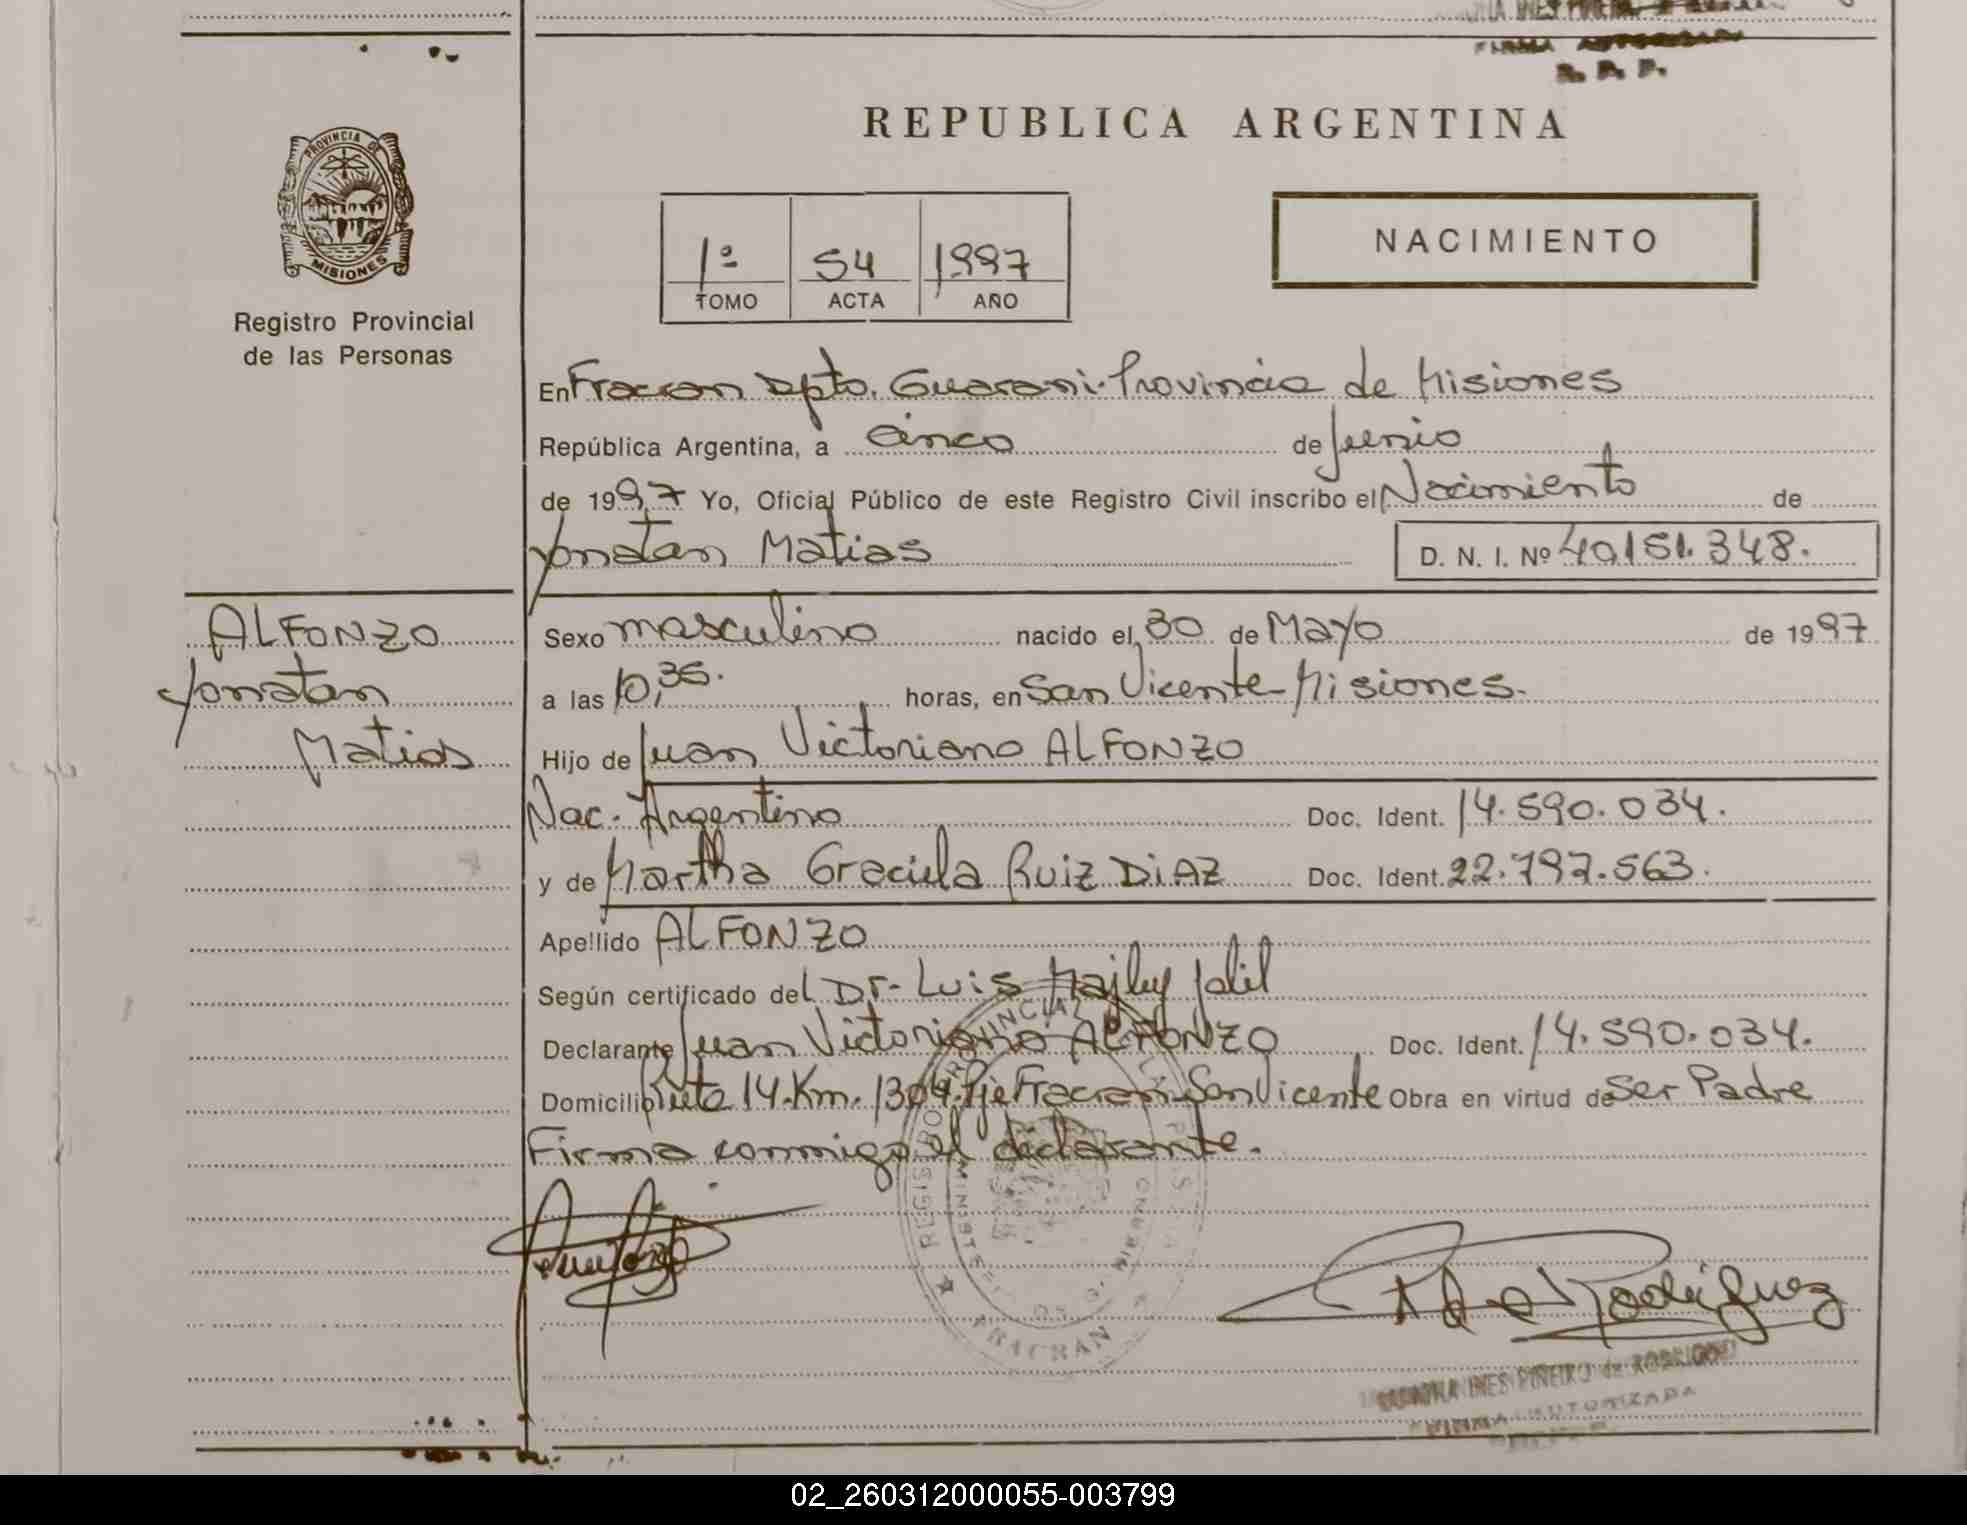 FIRMA AUTORIZADA
R. P. P.
REPUBLICA ARGENTINA
PROVINCIA DE
MISIONES
Registro Provincial
de las Personas
1º 54 1997
TOMO ACTA AÑO
NACIMIENTO
En Fracran Dpto. Guarani-Provincia de Misiones
República Argentina, a cinco de Junio
de 1997 Yo, Oficial Público de este Registro Civil inscribo el Nacimiento de
Yonatan Matias D. N. I. Nº 40.151.348.
ALFONZO
Yonatan
Matias
Sexo masculino nacido el 30 de Mayo de 1997
a las 10,35. horas, en San Vicente-Misiones.
Hijo de Juan Victoriano ALFONZO
Nac. Argentino Doc. Ident. 14.590.034.
y de Martha Graciela Ruiz DiAZ Doc. Ident. 22.797.563.
Apellido ALFONZO
Según certificado del Dr. Luis Jalil
Declarante Juan Victoriano ALFONZO Doc. Ident. 14.590.034.
Domicilio Ruta 14.Km.1304.Pje Fracran-San Vicente Obra en virtud de Ser Padre
Firma conmigo el declarante.
FRACRAN
Rodriguez
INES PIÑEIRO de RODRIGUEZ
FIRMA AUTORIZADA
02_260312000055-003799